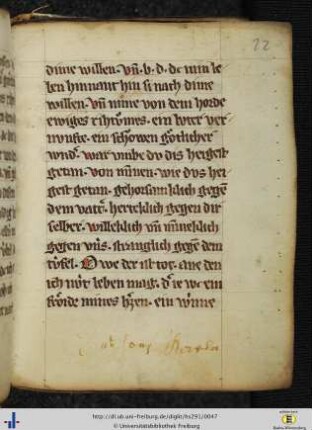 22
dine willen · vn̄ · b · d · dc min le
ben hinnant hin si nach dime
willen · vn̄ mine von dem horde
ewiges richtomes · ein luter ver
nunft · ein schowen götlicher
wnd͛ · war vmbe du dis heigest
getan · von minen · wie dvs hei
gest getan · gehorsamklich gegē
dem vatt͛ · herteklich gegen dir
selber · willeklich vn̄ mineklich
gegen vns · strenglich gegē dem
tv̂fel · O we der ist tot · ane den
ich nv̂t leben mag · d͛ ie w͛ ein
frôide mines h͛zen · ein wnne
http://dl.ub.uni-freiburg.de/diglit/hs291/0047
© Universitätsbibliothek Freiburg